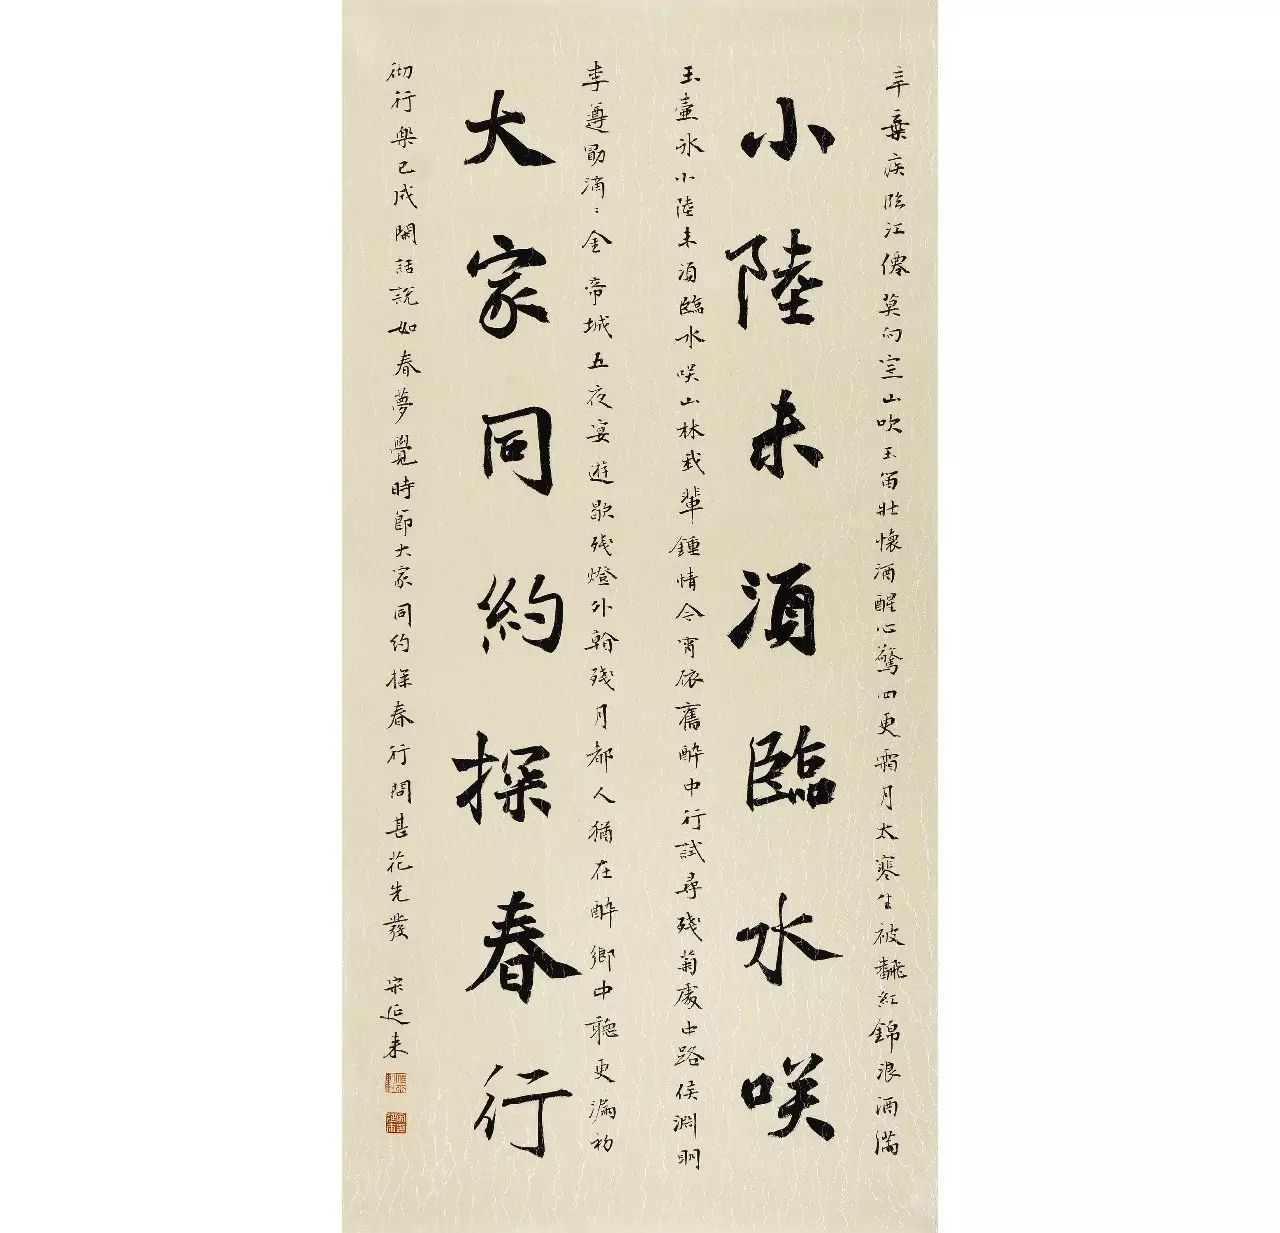 辛棄疾臨江僊莫向空山吹玉笛壯懷酒醒心驚四更霜月太寒生被翻紅錦浪酒滿
小陸未須臨水咲
玉壺冰小陸未須臨水咲山林我輩鍾情今宵依舊醉中行試尋殘菊處中路侯淵明
李遵勖滴〻金帝城五夜宴遊歇殘燈外看殘月都人猶在醉鄉中聽更漏初
大家同約探春行
彻行樂已成閑話說如春夢覺時節大家同約探春行問甚花先發 宋延来